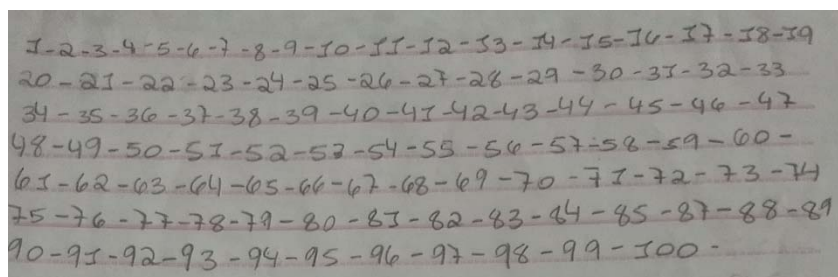 1-2-3-4-5-6-7-8-9-10-11-12-13-14-15-16-17-18-19
20-21-22-23-24-25-26-27-28-29-30-31-32-33
34-35-36-37-38-39-40-41-42-43-44-45-46-47
48-49-50-51-52-53-54-55-56-57-58-59-60-
61-62-63-64-65-66-67-68-69-70-71-72-73-74
75-76-77-78-79-80-81-82-83-84-85-87-88-89
90-91-92-93-94-95-96-97-98-99-100-